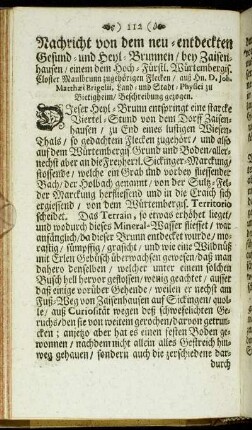 ·) 112 (·
Nachricht von dem neu-entdeckten
Gesund- und Heyl-Brunnen / bey Zaisen-
hausen / einem dem Hoch-Fürstl. Würtembergis.
Closter Maulbrunn zugehörigen Flecken / auß Hn. D. Joh.
Matthæi Brigelii, Land- und Stadt-Physici zu
Bretigheim / Beschreibung gezogen.
DIeser Heyl-Brunn entspringt eine starcke
Viertel-Stund von dem Dorff Zaisen-
hausen / zu End eines lustigen Wiesen-
Thals / so gedachtem Flecken zugehört / und also
auf dem Würtembergis. Grund und Boden / aller-
nechst aber an die Freyherrl. Sickinger-Marckung /
stossende / welche ein Grab und vorbey fliessender
Bach / der Holbach genannt / von der Sultz-Fel-
der Marckung herfliessend und in die Craich sich
ergiessend / von dem Würtembergis. Territorio
scheidet. Das Terrain, so etwas erhöhet lieget /
und wodurch dieses Mineral-Wasser fliesset / war
anfänglich / da dieser Brunn entdecket wurde / mo-
rastig / sümpffig / grasicht / und wie eine Wildnüß
mit Erlen Gebüsch überwachsen gewesen / daß man
dahero denselben / welcher unter einem solchen
Busch hell hervor geflossen / wenig geachtet / ausser
daß einige vorüber Gehende / weilen er nechst am
Fuß-Weg von Zaisenhausen auf Sickingen / quol-
le / auß Curiosität wegen deß schwefelichten Ge-
ruchs / den sie von weitem gerochen / darvon getrun-
cken ; anjetzo aber hat es einen festen Boden ge-
wonnen / nachdem nicht allein alles Gesträuch hin-
weg gehauen / sondern auch die zerschiedene dar-
durch